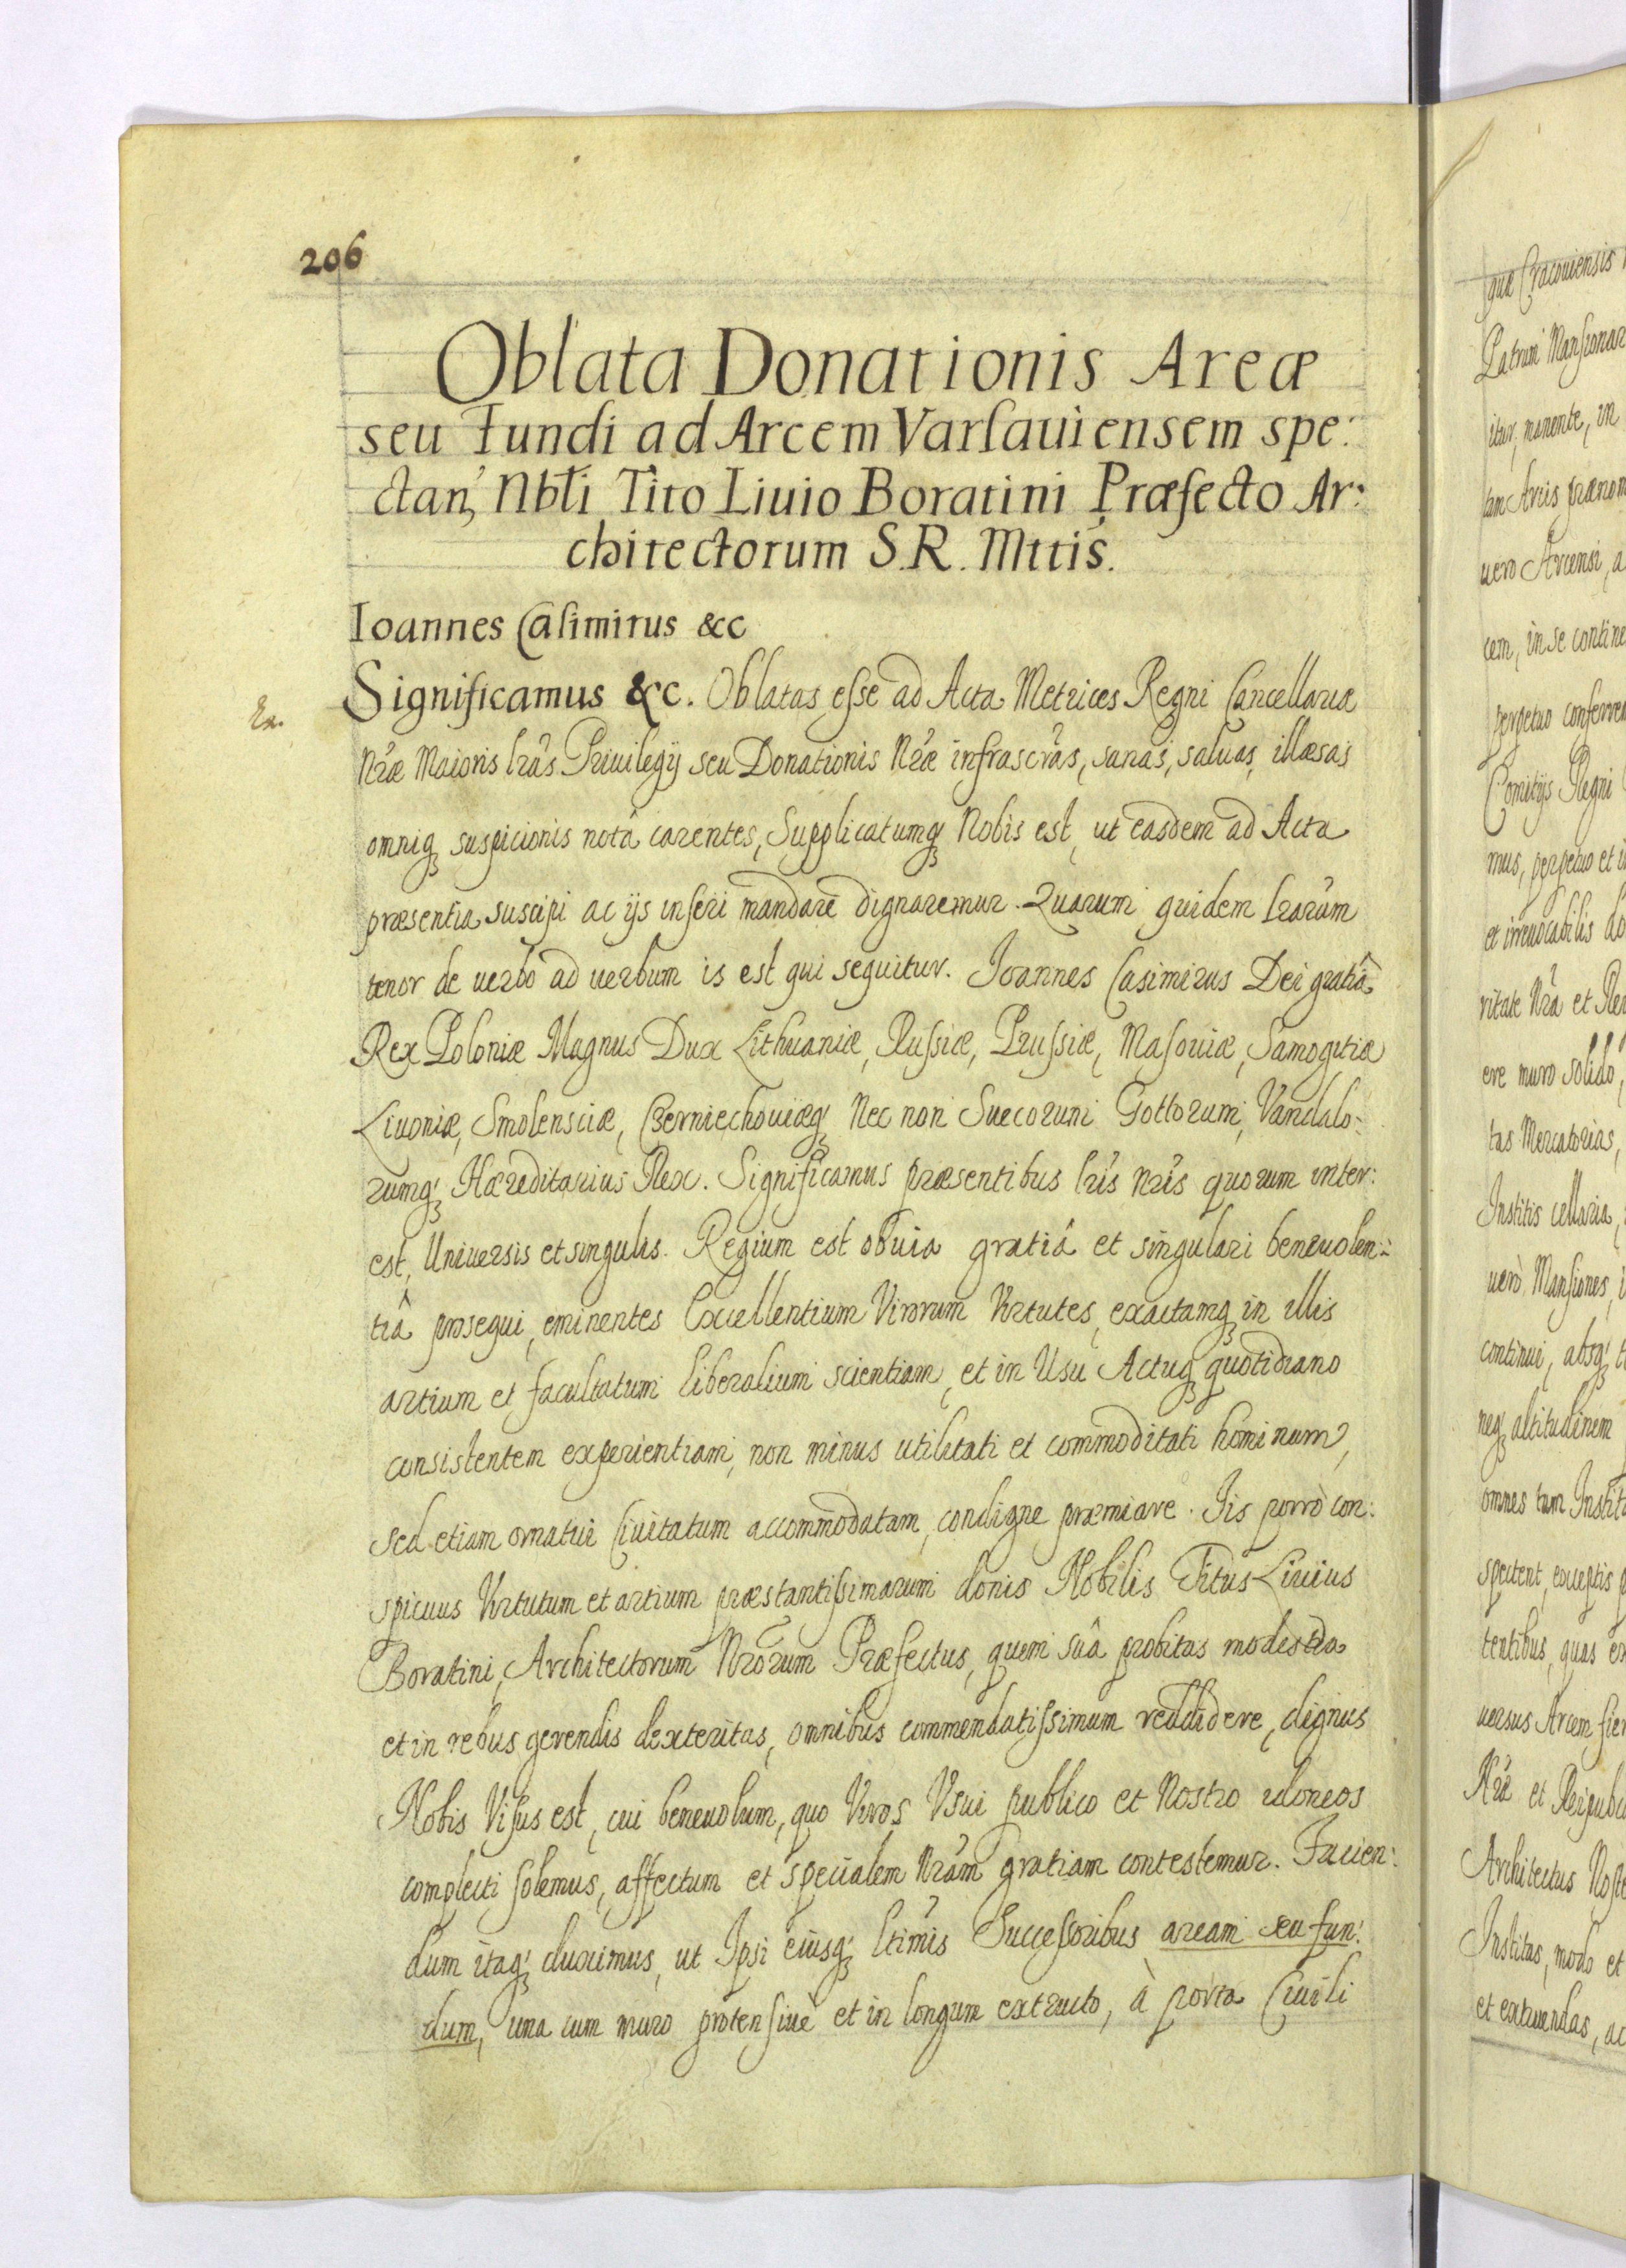 206
Oblata Donationis Areæ
seu Fundi ad Arcem Varsauiensem spe:
ctan, Nbli Tito Liuio Boratini Præfecto Ar:
chitectorum S.R. Mttis.
Ioannes Casimirus &c
Significamus &c. Oblatas esse ad Acta Metrices Regni Cancellariæ
Nræ Maioris lras Priuilegij seu Donationis Nræ infrascras, sanas, saluas, illæsas
omniq; suspicionis notâ carentes, Supplicatumq; Nobis est, ut easdem ad Acta
præsentia suscipi ac ijs inseri mandare dignaremur. Quarum quidem lrarum
tenor de uerbo ad uerbum is est qui sequitur. Joannes Casimirus Dei gratiâ
Rex Poloniæ Magnus Dux Lithuaniæ, Russiæ, Prussiæ, Masouiæ, Samogitiæ
Liuoniæ, Smolensciæ, Czerniechouiæq; Nec non Suecorum Gottorum, Vandalo:
rumq; Hæreditarius Rex. Significamus præsentibus lris nris quorum inter:
est, Uniuersis et singulis. Regium est obuia gratiâ et singulari beneuolen:
tiâ prosequi, eminentes Excellentium Virorum Virtutes, exactamq; in illis
artium et facultatum liberalium scientiam, et in Usu Actuq; quotidiano
consistentem experientiam, non minus utilitati et commoditati hominum,
sed etiam ornatui Ciuitatum accommodatam, condigne præmiare. Iis porrò con:
spicuus Virtutum et artium præstantissimarum donis Nobilis Titus Liuius
Boratini, Architectorum Nrorum Præfectus, quem suâ probitas modestia
et in rebus gerendis dexteritas, omnibus commendatissimum reddidere, dignus
Nobis Visus est, cui beneuolum, quo Viros Vsui publico et Nostro idoneos
complecti solemus, affectum et specialem Nram gratiam contestemur. Facien:
dum itaq; duximus, ut Ipsi eiusq; ltimis Successoribus aream seu fun:
dum, una cum muro protensiuè et in longum extructo, à porta Ciuili
quæ Cracouiensis
Patrum Mansionar
itur, manente, in
tam Arcis prænom
uero Arcensi, a
cem, in se contine
perpetuo conferre
Comitijs Regni
mus, perpetuo et i
et irreuocabilis do
ritate Nra et Re
ere muro solido,
tas Mercatorias,
Institis cellaria,
uerò Mansiones, i
continui, absq; t
neq; altitudinem
omnes tam Instit
spectent, exceptis p
tentibus, quas ex
uersus Arcem fier
Nræ et Reipubli
Architectus Nost
Institas, modo et
et extruendas, ac